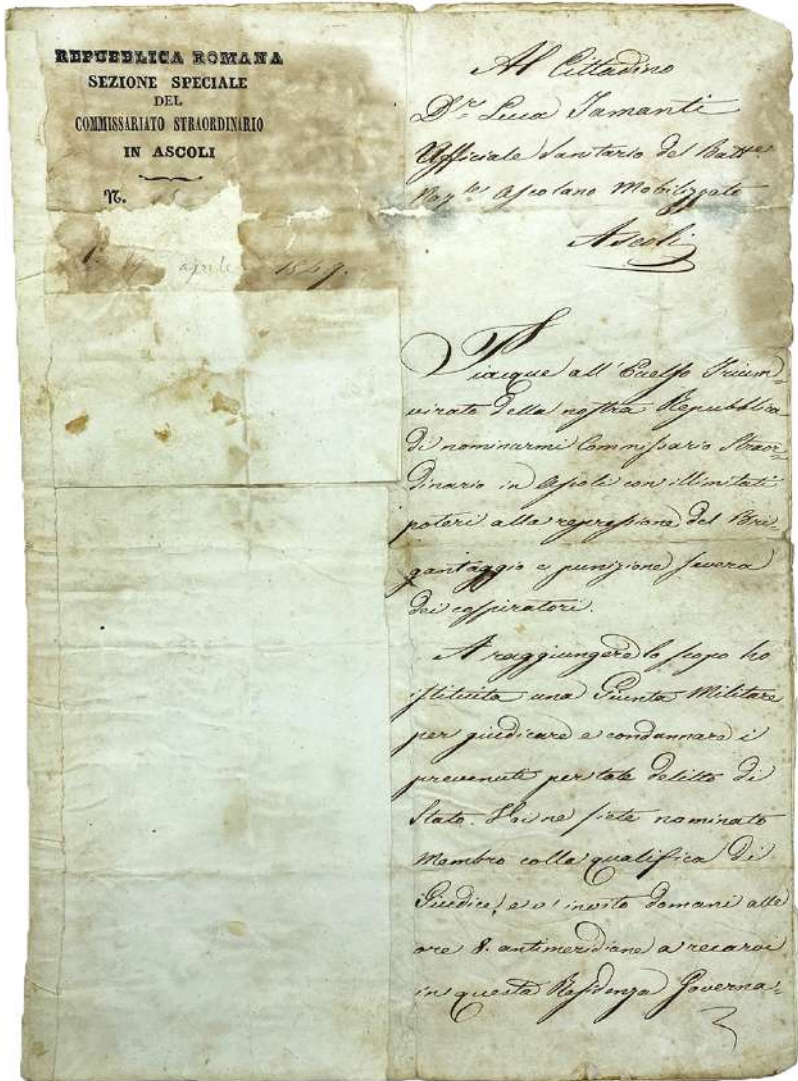 REPUBBLICA ROMANA
SEZIONE SPECIALE
DEL
COMMISSARIATO STRAORDINARIO
IN ASCOLI
N.
aprile 1849.
Al Cittadino
D.r Luca Tamanti
Ufficiale Sanitario del Batt.e
Naz.le Ascolano Mobilizzato
Ascoli
Piacque all'Eccelso Trium=
virato della nostra Repubblica
di nominarmi Commissario Straor=
dinario in Ascoli con illimitati
poteri alla repressione del Bri=
gantaggio e punizione severa
dei cospiratori.
A raggiungere lo scopo ho
istituita una Giunta Militare
per giudicare e condannare i
prevenuti per tale delitto di
Stato. Voi ne siete nominato
Membro colla qualifica di
Giudice, e v'invito domani alle
ore 8. antimeridiane a recarvi
in questa Residenza Governa=